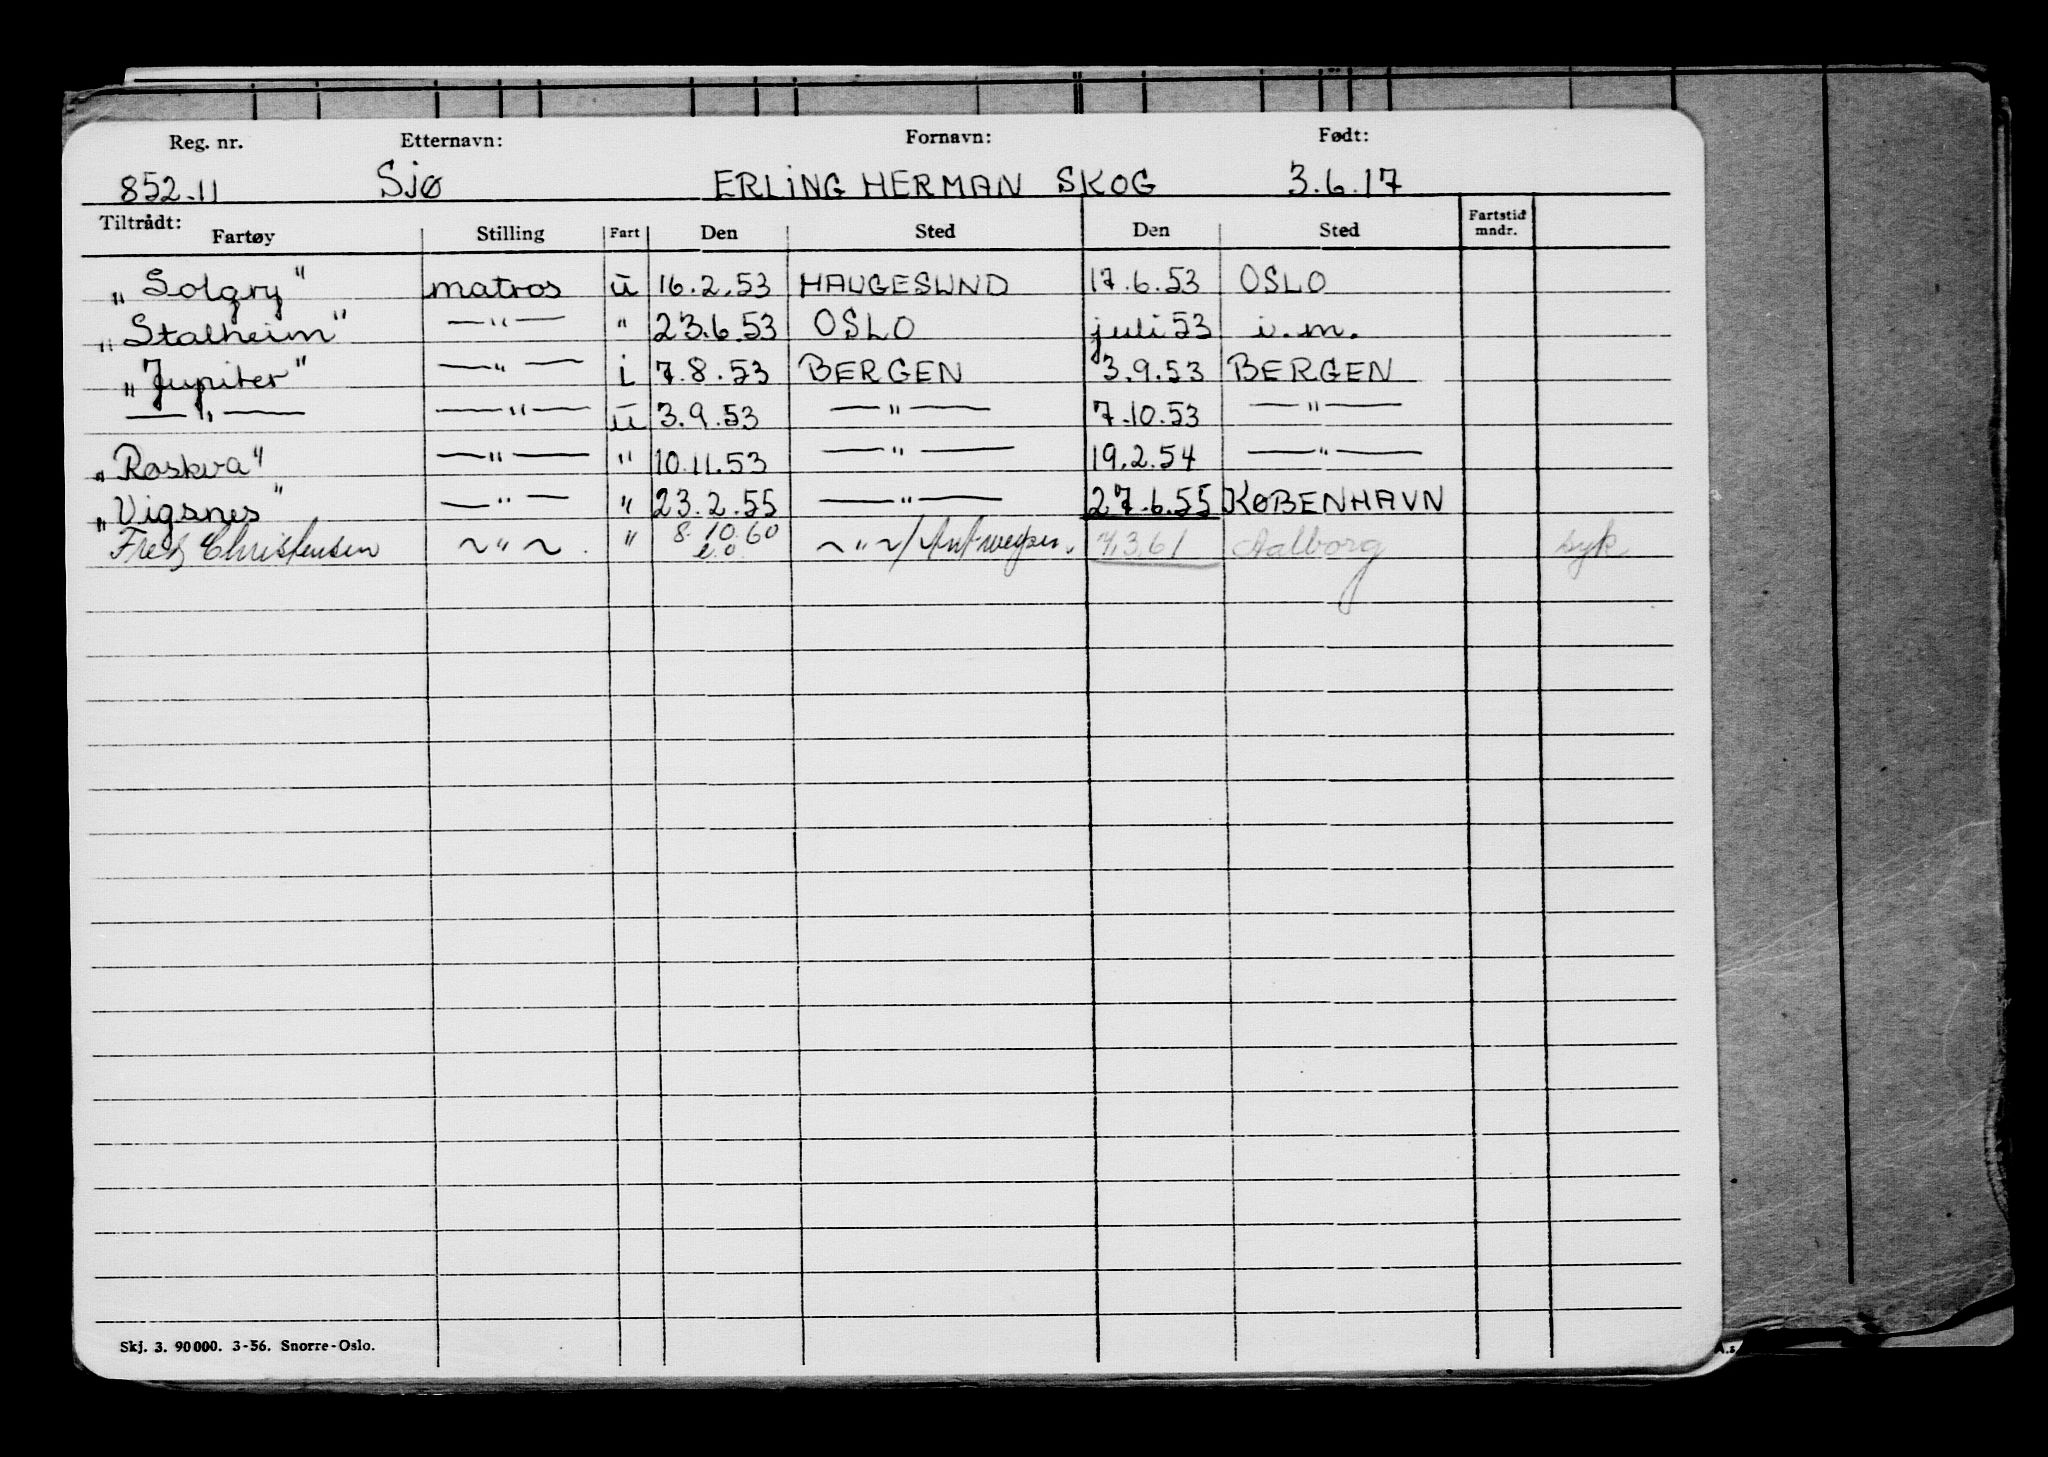 Reg. nr. Etternavn: Fornavn: Født:
852.11 SJØ ERLING HERMAN SKOG 3.6.17
Tiltrådt:
Fartøy Stilling Fart Den Sted Den Sted Fartstid mndr.
„Solgry" matros u 16.2.53 HAUGESUND 17.6.53 OSLO
„Stalheim" —"— " 23.6.53 OSLO juli 53 i.m.
„Jupiter" —"— i 7.8.53 BERGEN 3.9.53 BERGEN
—"— —"— u 3.9.53 —"— 7.10.53 —"—
„Roskva" —"— " 10.11.53 —"— 19.2.54 —"—
„Vigsnes" —"— " 23.2.55 —"— 27.6.55 KØBENHAVN
Fred. Christensen ~"~ " 8.10.60 ~"~/Antwerpen. 7.3.61 Aalborg syk
Skj. 3. 90000. 3-56. Snorre-Oslo.